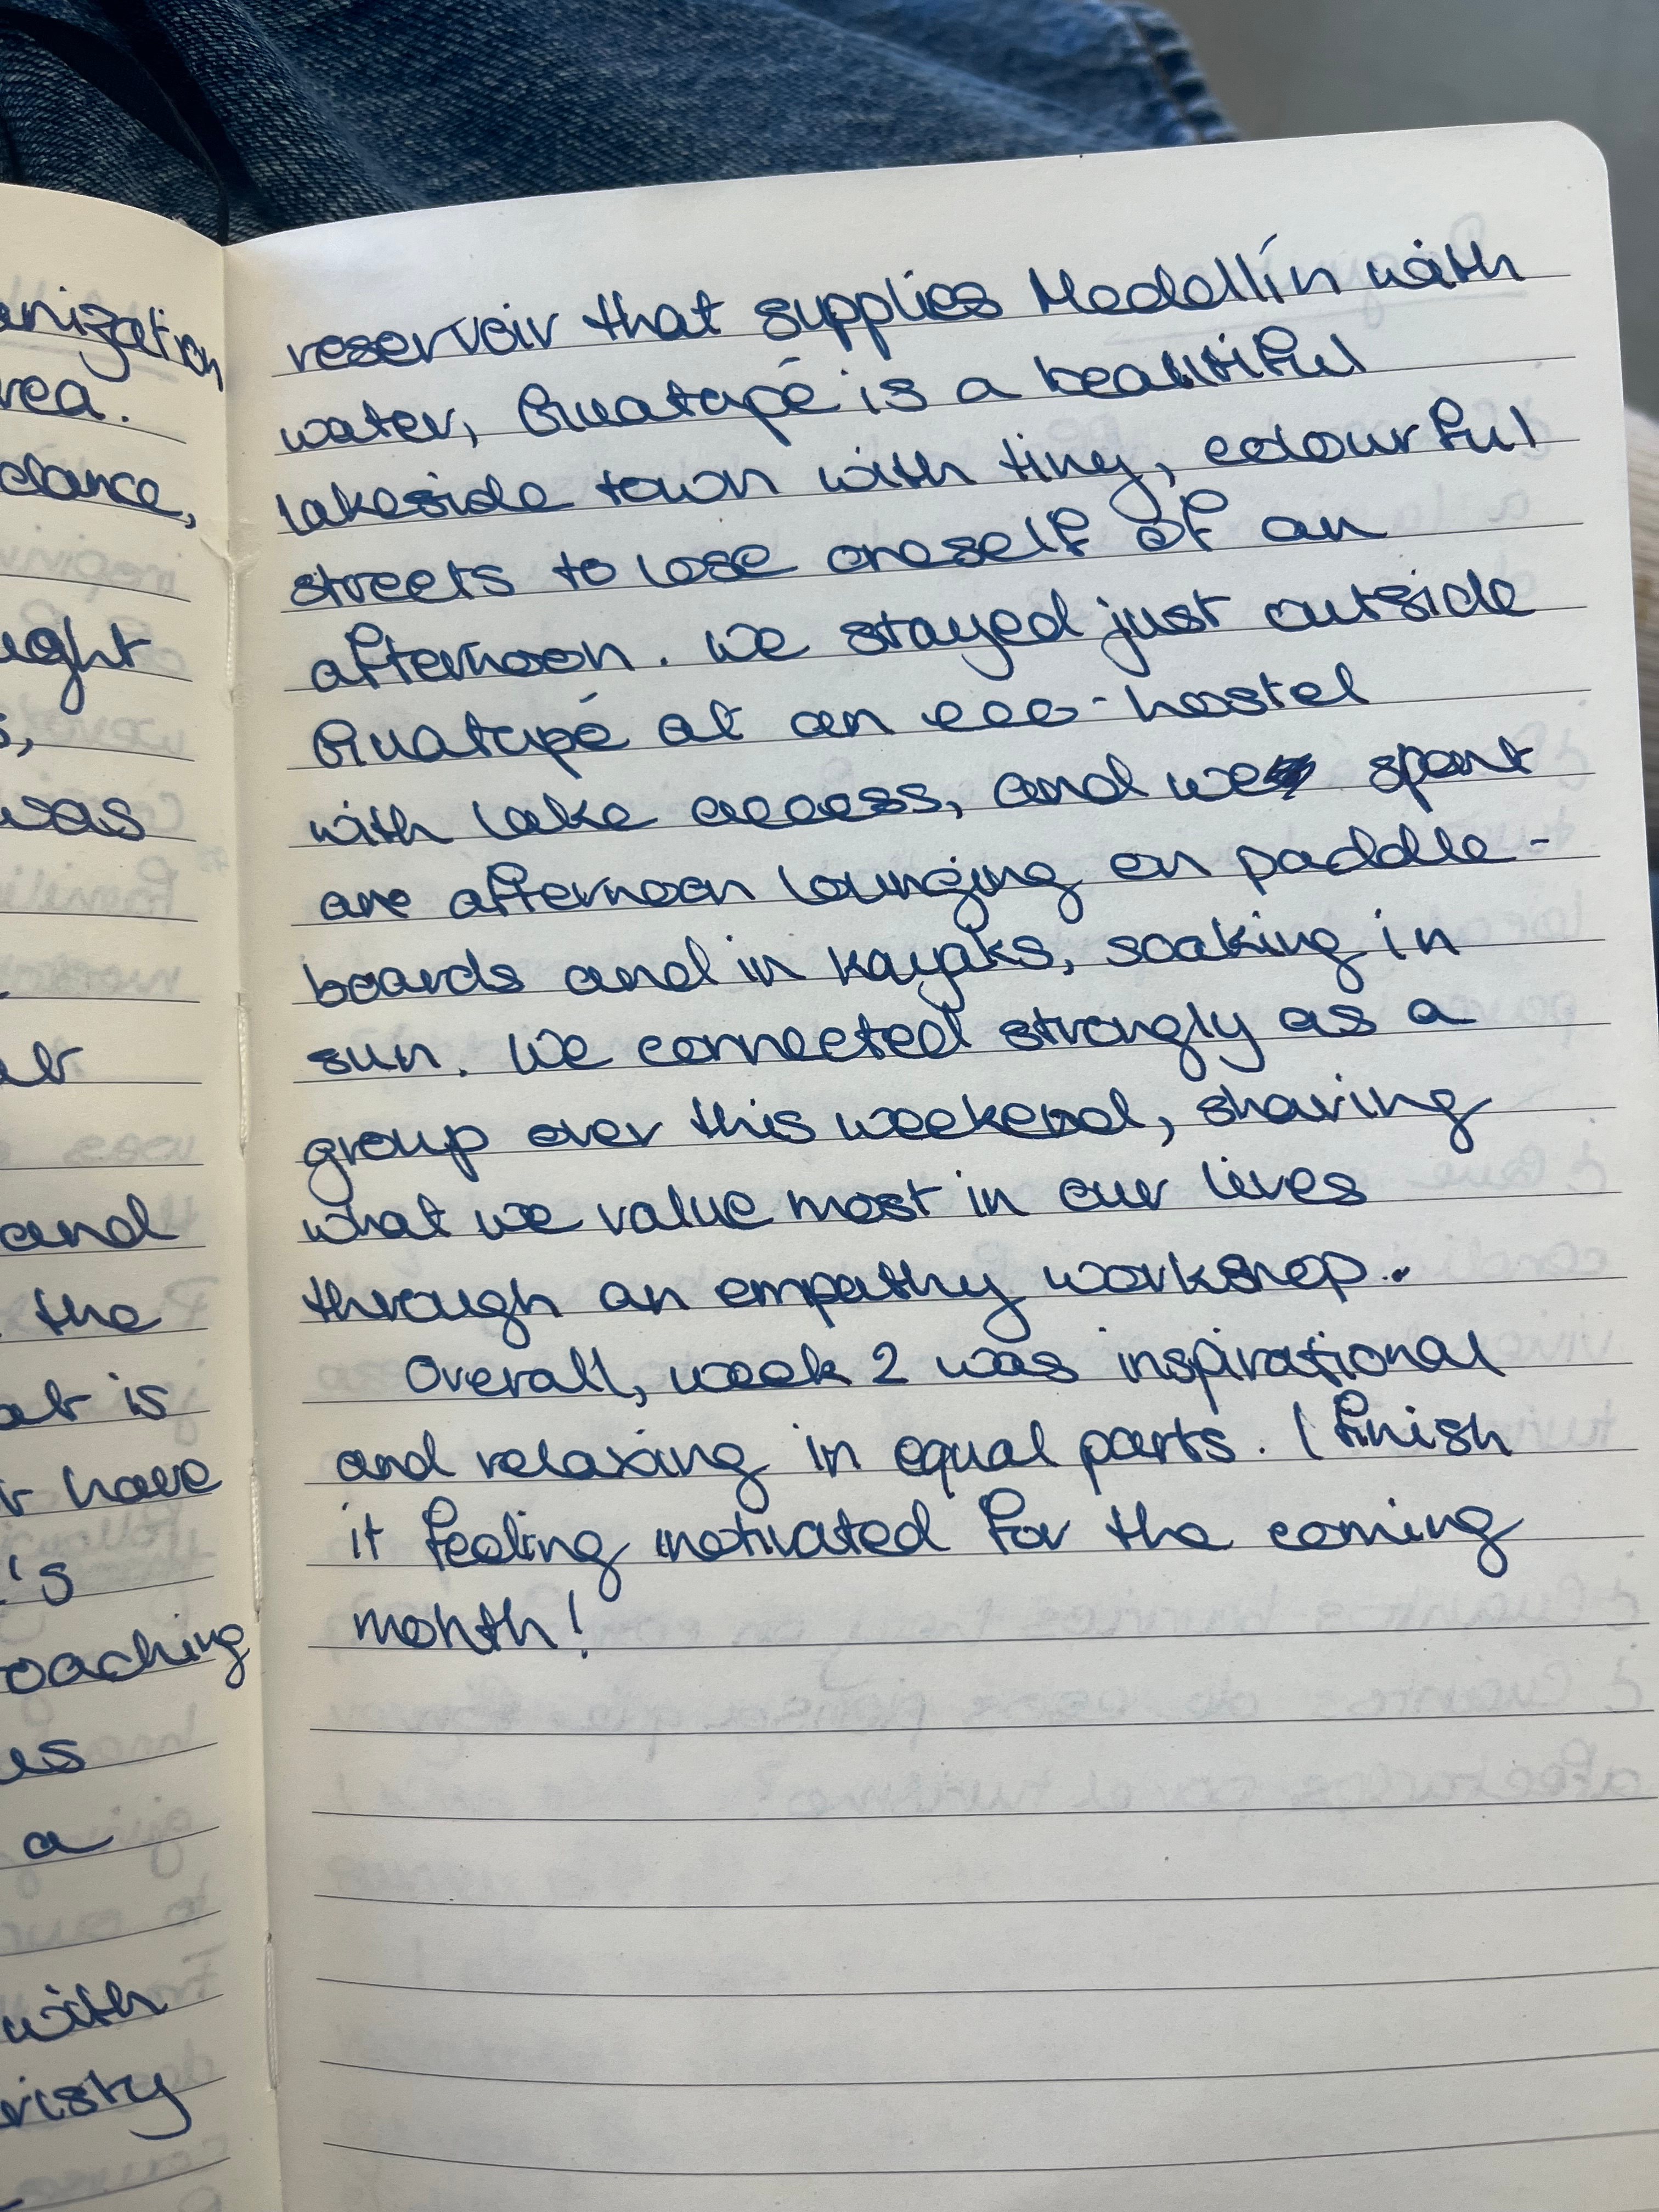 anization
rea.
dance,
ught
s,
was
and
the
at is
r have
's
oaching
us
a
with
risky
reservoir that supplies Medellín with
water, Guatapé is a beautiful
lakeside town with tiny, colourful
streets to lose oneself of an
afternoon. We stayed just outside
Guatapé at an eco-hostel
with lake access, and we spent
one afternoon lounging on paddle-
boards and in kayaks, soaking in
sun. We connected strongly as a
group over this weekend, sharing
what we value most in our lives
through an empathy workshop.
Overall, week 2 was inspirational
and relaxing in equal parts. I finish
it feeling motivated for the coming
month!